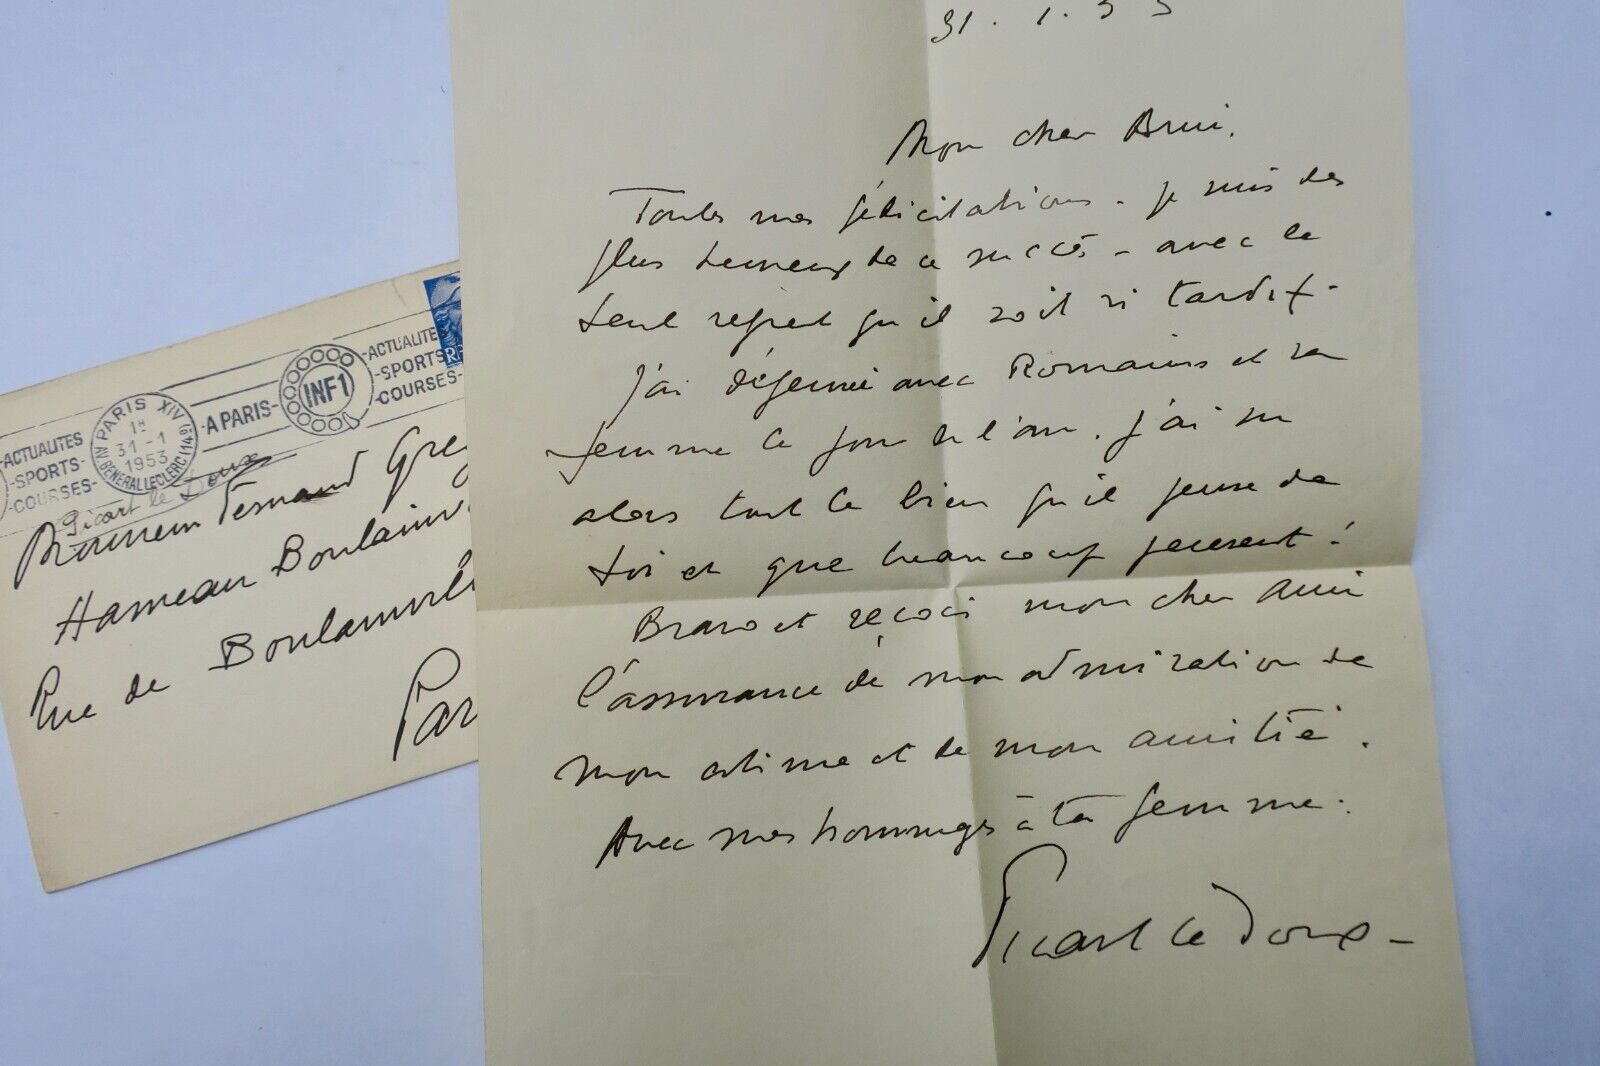 31. 1. 53
Mon cher Ami.
Toutes mes félicitations. je suis des
plus heureux de ce succès - avec le
seul regret qu'il soit si tardif.
J'ai déjeuné avec Romains et sa
femme le jour de l'an. J'ai su
alors tout le bien qu'il pense de
toi et que beaucoup pensent !
Bravo et reçois mon cher Ami
l'assurance de mon admiration de
mon estime et de mon amitié.
Avec mes hommages à ta femme.
Picart le Doux -
ACTUALITES
-SPORTS-
COURSES-
PARIS XIV
1H
31-1
1953
AV GENERAL LECLERC (14e)
-A PARIS-
INF1
-ACTUALITES
-SPORTS
-COURSES-
R
Picart le Doux
Monsieur Fernand Greg
Hameau Boulainv
Rue de Boulainvill
Par